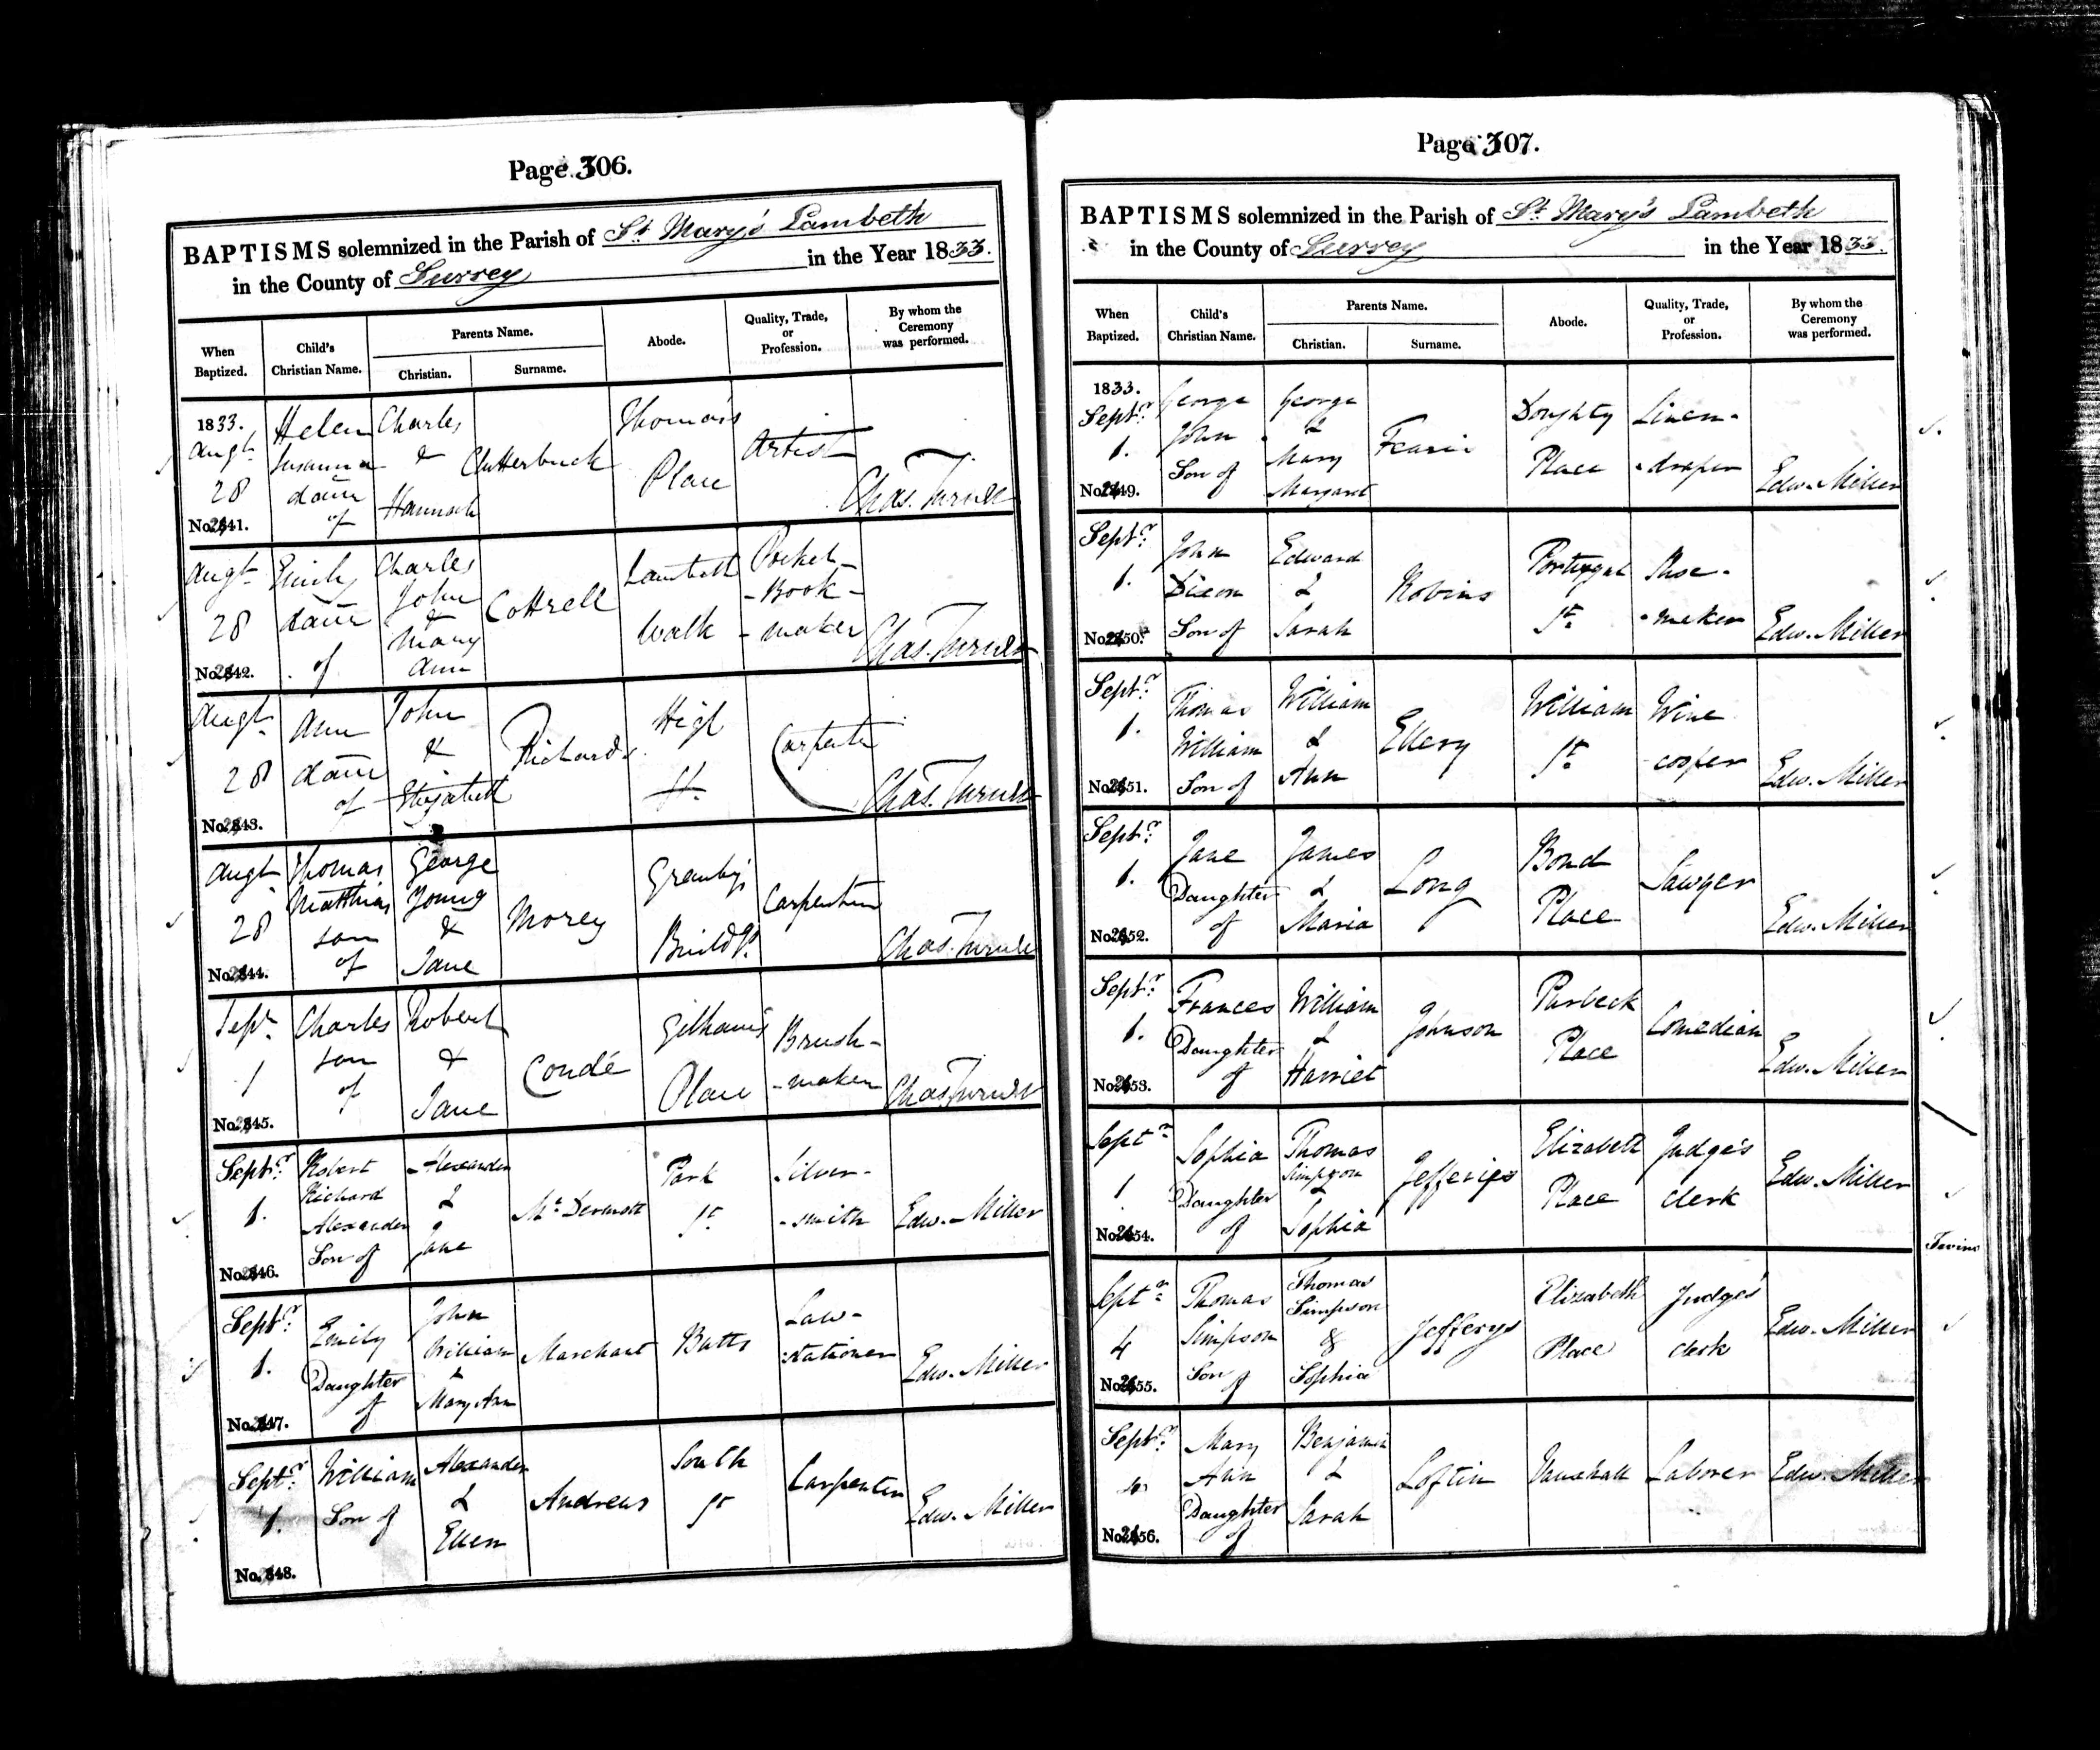 Page 306.
BAPTISMS solemnized in the Parish of St. Mary's Lambeth
in the County of Surrey in the Year 1833.
When Baptized. Child's Christian Name. Parents Name. Christian. Surname. Abode. Quality, Trade, or Profession. By whom the Ceremony was performed.
1833. Augt. 28 No. 41. Helen Susanna daur of Charles & Hannah Clutterbuck Thomas's Place Artist Chas. Turner
Augt. 28 No. 42. Emily daur of Charles John & Mary Ann Cottrell Lambeth Walk Pocket-Book-maker Chas. Turner
Augt. 28 No. 43. Ann daur of John & Elizabeth Richards High St. Carpenter Chas. Turner
Augt. 28 No. 44. Thomas Matthias son of George Young & Jane Morey Granby's Buildgs. Carpenter Chas. Turner
Sept. 1 No. 45. Charles son of Robert & Jane Condé Place Brush-maker Chas. Turner
Septr. 1. No. 46. Robert Richard Alexander Son of Alexander & Jane McDermott Park St. Silver-smith Edw. Miller
Septr. 1. No. 47. Emily Daughter of John William & Mary Ann Marchant Butts Law-stationer Edw. Miller
Septr. 1. No. 48. William Son of Alexander & Ellen Andrews South St. Carpenter Edw. Miller
Page 307.
BAPTISMS solemnized in the Parish of St. Mary's Lambeth
in the County of Surrey in the Year 1833.
When Baptized. Child's Christian Name. Parents Name. Christian. Surname. Abode. Quality, Trade, or Profession. By whom the Ceremony was performed.
1833. Septr. 1. No. 49. George John Son of George & Mary Margaret Doughty Place Linen-draper Edw. Miller
Septr. 1. No. 50. John Dixon Son of Edward & Sarah Robins Portugal St. Shoe-maker Edw. Miller
Septr. 1. No. 51. Thomas William Son of William & Ann Ellery William St. Wine cooper Edw. Miller
Septr. 1. No. 52. Jane Daughter of James & Maria Long Bond Place Sawyer Edw. Miller
Septr. 1. No. 53. Frances Daughter of William & Harriet Johnson Purbeck Place Comedian Edw. Miller
Septr. 1 No. 54. Sophia Daughter of Thomas Simpson & Sophia Jefferys Elizabeth Place Judge's clerk Edw. Miller
Septr. 4 No. 55. Thomas Simpson Son of Thomas Simpson & Sophia Jefferys Elizabeth Place Judge's clerk Edw. Miller
Septr. 4 No. 56. Mary Ann Daughter of Benjamin & Sarah Loftin Vauxhall Laborer Edw. Miller